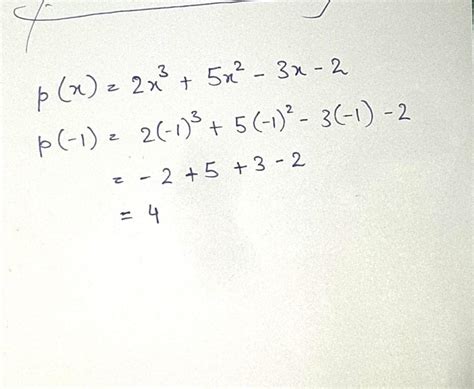 p(x) = 2x³ + 5x² - 3x - 2
p(-1) = 2(-1)³ + 5(-1)² - 3(-1) - 2
= - 2 + 5 + 3 - 2
= 4